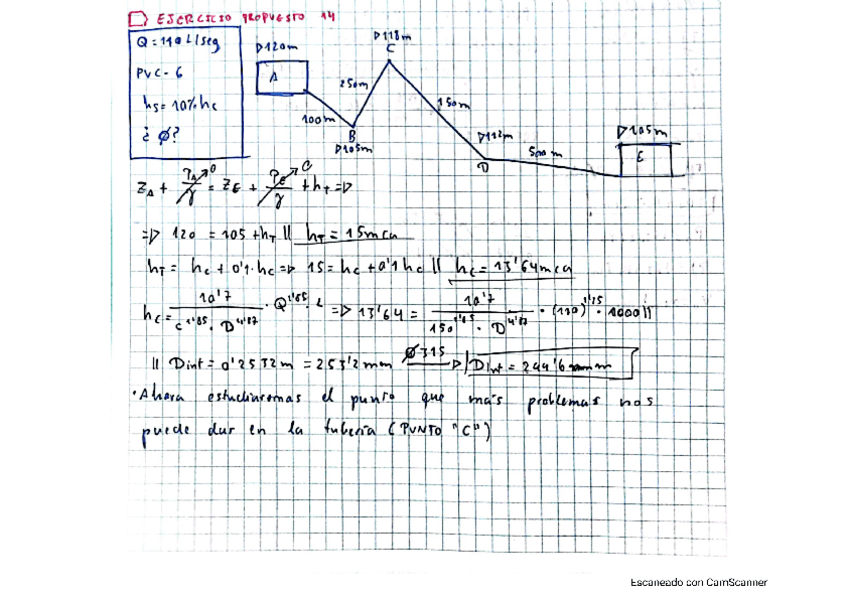 EJERCICIO PROPUESTO 14
Q = 110 L/seg
PVC - 6
hs = 10% hc
¿ Ø?
▷120m
A
100m
B
▷105m
250m
▷118m
C
150m
▷112m
D
500m
▷105m
E
Z_A + P_A/γ↗0 = Z_E + P_E/γ↗0 + h_T =▷
=▷ 120 = 105 + h_T || h_T = 15mca
h_T = h_c + 0'1·h_c =▷ 15 = h_c + 0'1 h_c || h_c = 13'64mca
h_c = 10'7 / C^1'85 · D^4'87 · Q^1'85 · L =▷ 13'64 = 10'7 / 150^1'85 · D^4'87 · (110)^1'85 · 1000 ||
|| Dint = 0'2532m = 253'2mm Ø315 ▷ Dint = 299'6mm
· Ahora estudiaremos el punto que más problemas nos
puede dar en la tubería (PUNTO "C")
Escaneado con CamScanner